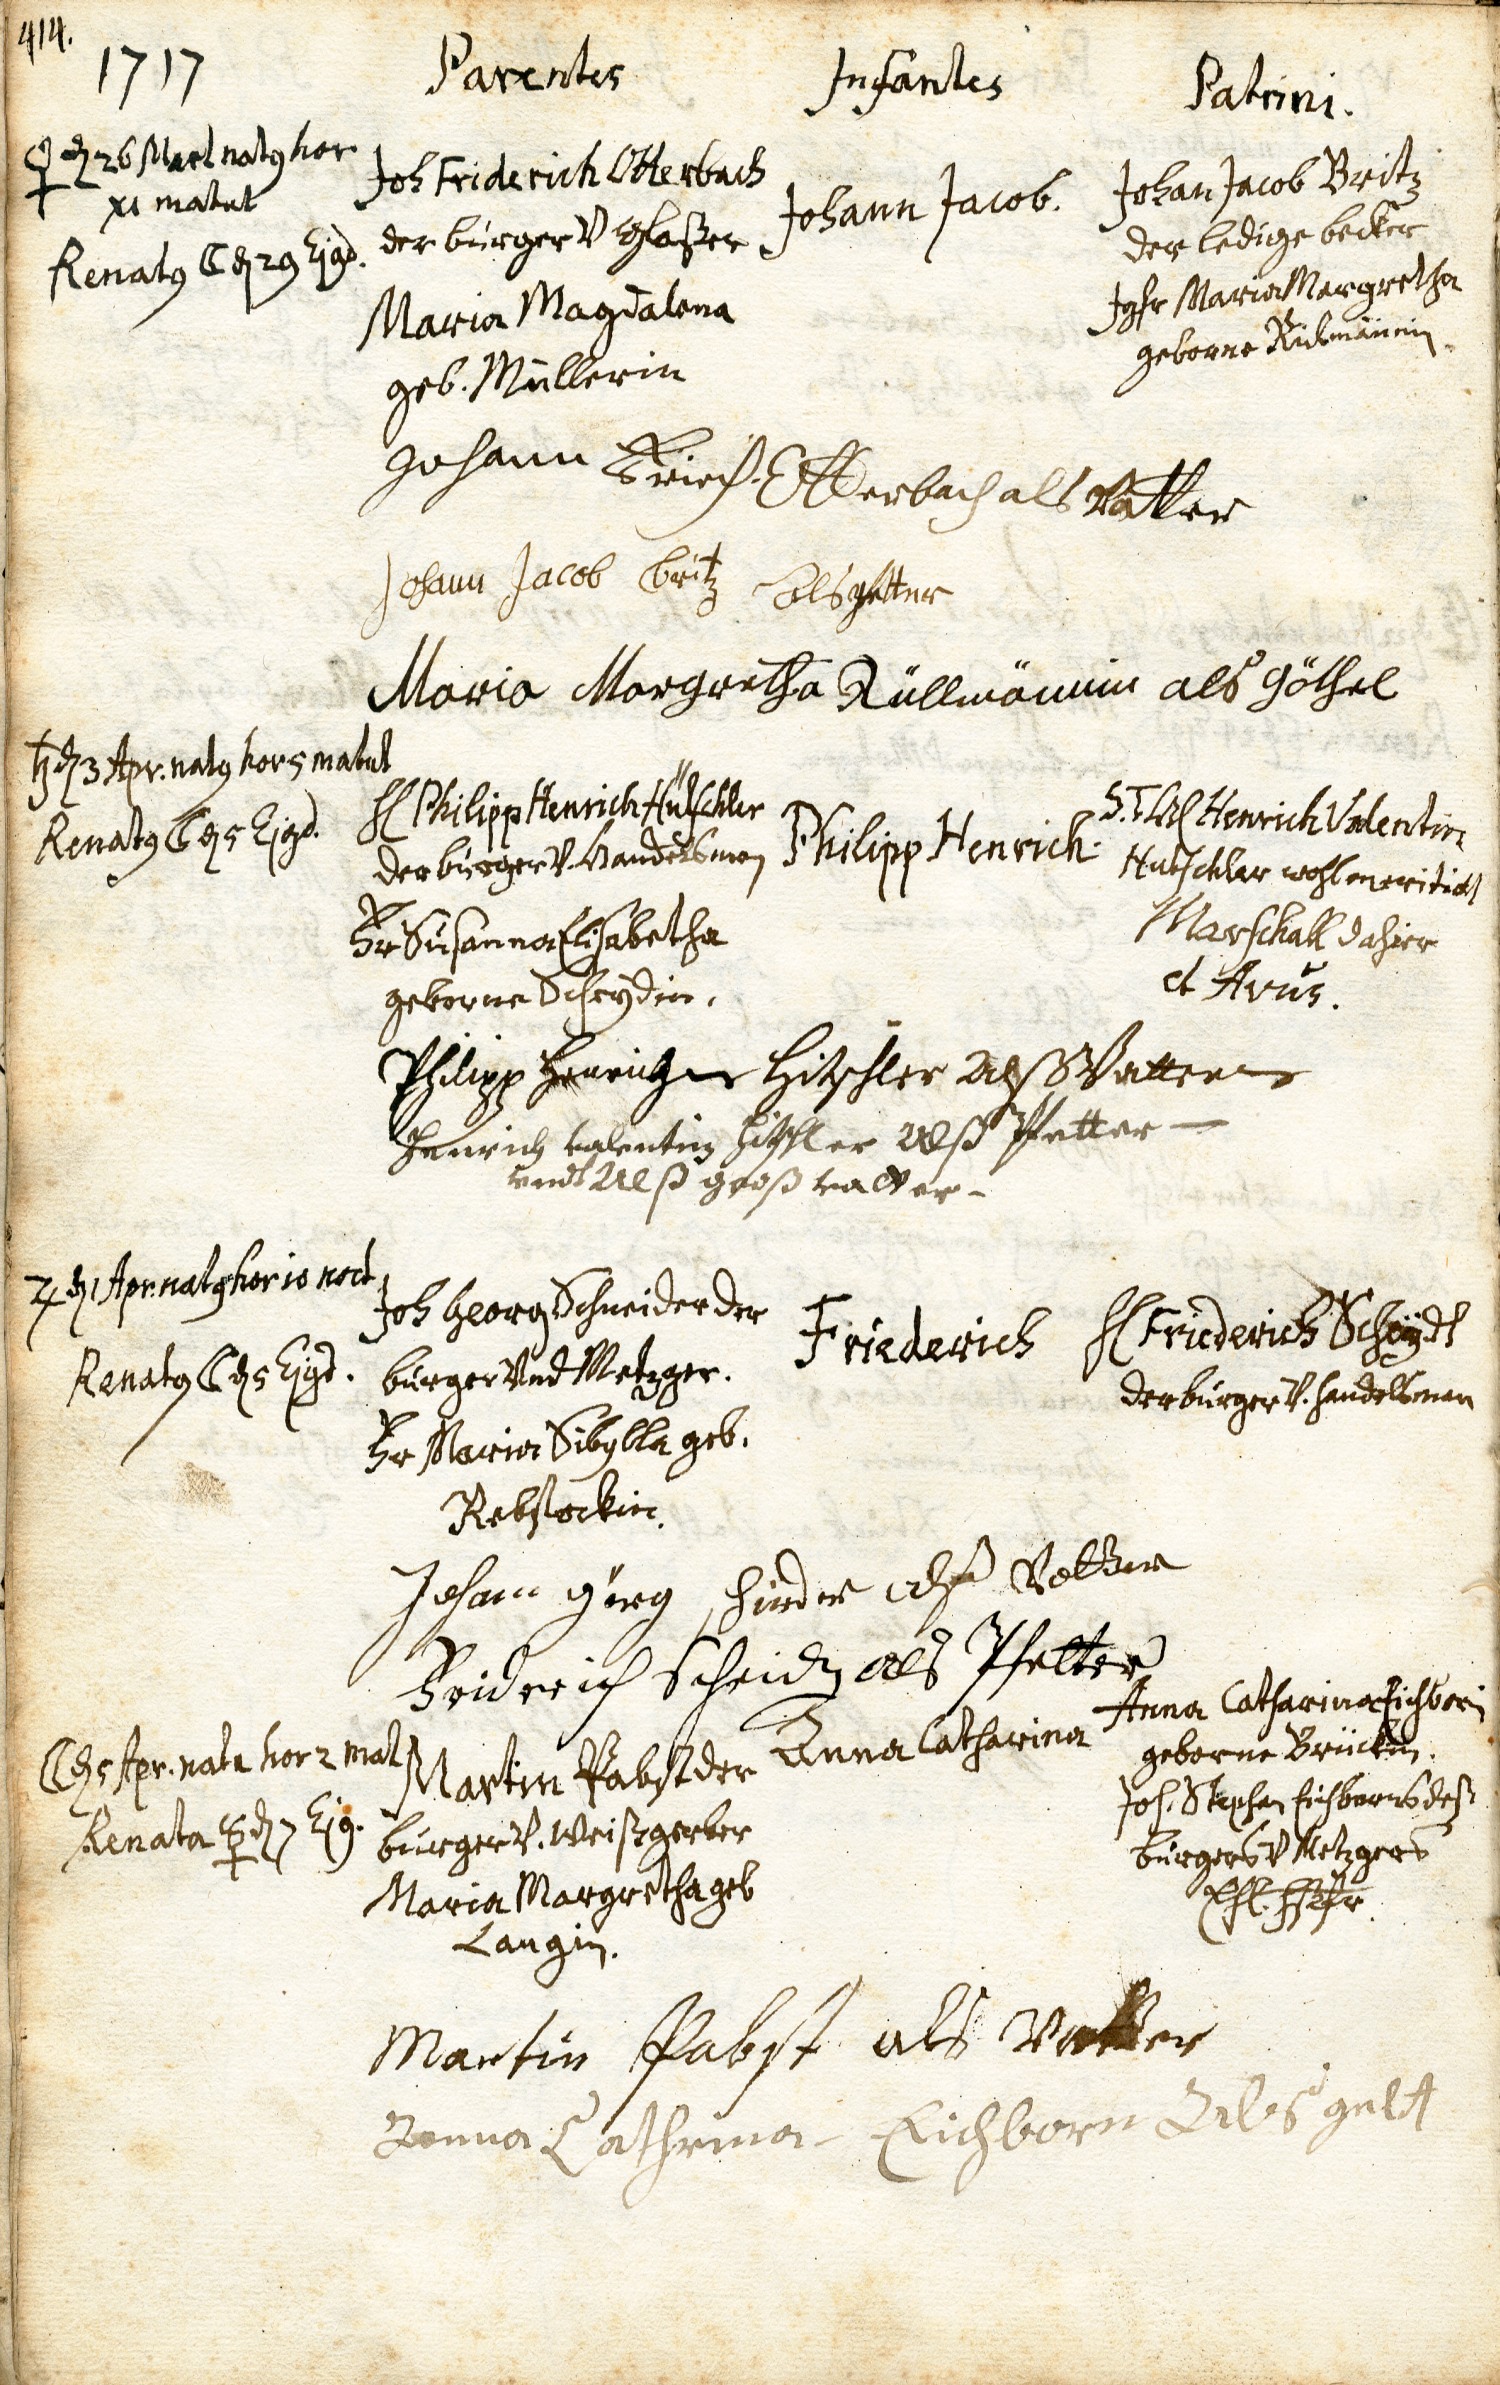 414.
1717
Parentes
Infantes
Patrini.
♀ d 26 Mart natg hor
XI matut
Renatg ☾ d 29 Ejgd.
Joh Friderich Otterbach
der burger V Glaßer
Maria Magdalena
geb. Müllerin
Johann Jacob.
Johan Jacob Britz
der ledige becker
Jgfr Maria Margretha
geborne
Johann Otterbach als Vatter
Johann Jacob britz als getter
Maria Margretha Rüllmännin als göthel
♄ d 3 Apr. natg hor 5 matut
Renatg ☾ d 5 Ejgd.
H Philipp Henrich Hütschler
der burger V. Handelsman
Fr Susanna Elisabetha
geborne Scheydin.
Philipp Henrich.
S. T. H Henrich Valentin
Hutschler wohl meritirt
Marschall dahier
et Avus.
Philipp Henrich Hitschler Alß Vatter
Henrich valentin Hitschler Alß Pfetter
vndt Alß groß vatter
♃ d 1 Apr. natg hor 10 noct
Renatg ☾ d 5 Ejgd.
Joh Georg Schneider der
burger Vnd Metzger.
Fr Maria Sibylla geb.
Rebstockin.
Friederich
H Friederich Scheydt
der burger V. handelsman
Johann görg als Vatter
Fridrich Scheidt als Pfetter
☾ d 5 Apr. nata hor 2 mat
Renata ☿ d 7 Ejg.
Martin Pabst der
burger V. Weißgerber
Maria Margretha geb
Langin.
Anna Catharina
Anna Catharina Eichborn
geborne Brückin.
Joh. Stephan Eichborns deß
burgers V Metzgers
Martin Pabst als Vatter
Anna Cathrina Eichborn Als